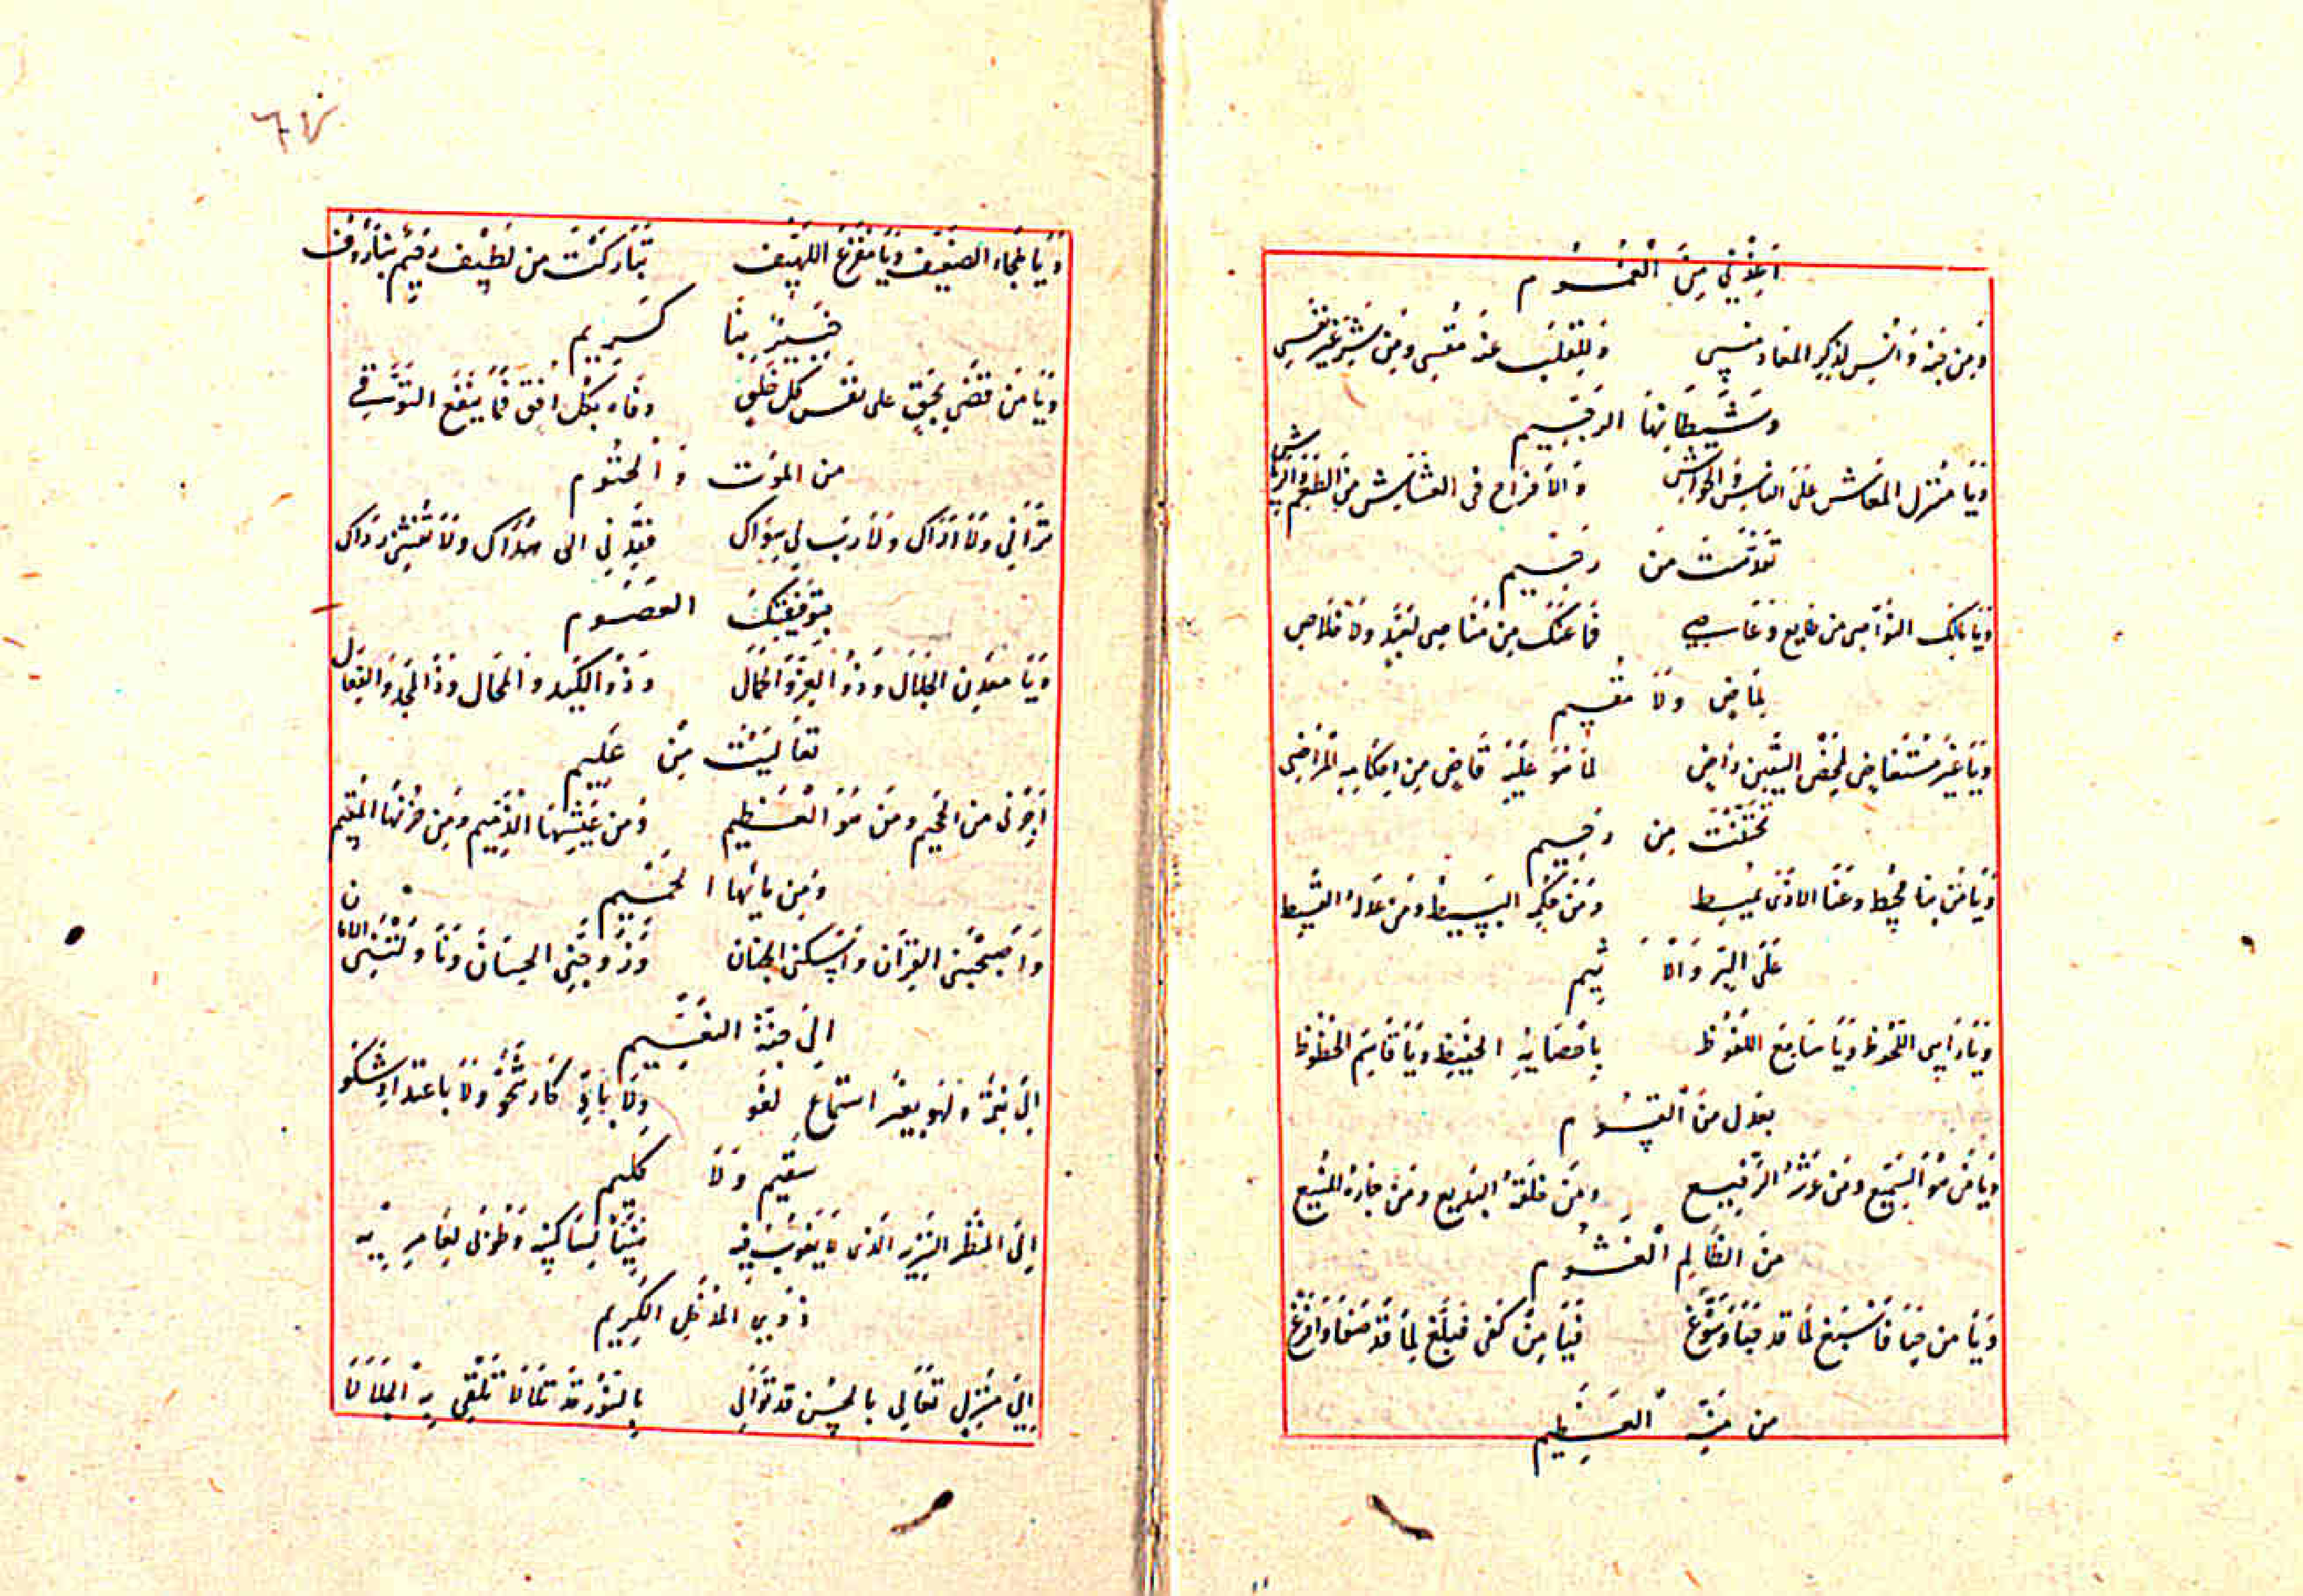 اعذني من الغموم
ومن جنة وانس لذكر المعاد منسي وللقلب عنه مقسي ومن شر غي نفسي
وشيطانها الرجيم
ويا منزل المعاش على الناس والمواشي والافراخ في العشاش من الطعم والرياش
تقدست من رحيم
ويا مالك النواصي من طايع وعاصي فما عنك من مناص لعبد ولا خلاص
لماض ولا مقيم
ويا خير مستعاض لمحض اليقين راض بما هو عليه قاض من احكامه المواضي
تحننت من رحيم
ويا من بنا محيط وعنا الاذى يميط ومن ملكه البسيط ومن عدله القسيط
على البر والاثيم
ويا رائي اللحوظ ويا سامع اللفوظ باحصائه الحفيظ ويا قاسم الحظوظ
بعدل من القسوم
ويا من هو السميع ومن عرشه الرفيع ومن خلقه البديع ومن جاره المنيع
من الظالم الغشوم
ويا من حبا فاسبغ ما قد حبا وسوغ فيا من كفى فبلغ ما قد صفا وافرغ
من منه العظيم
٦٧
ويا ملجاء الضعيف ويا مفزع اللهيف تباركت من لطيف رحيم بنا رؤف
خبير بنا كريم
ويا من قضى بحق على نفس كل خلق وفاه بكل افق فما ينفع التوقي
من الموت والحتوم
تراني ولا اراك ولا رب لي سواك فقدني الى هداك ولا تغشني رداك
بتوفيقك العصوم
ويا معدن الجلال وذو العز والجمال وذو الكيد والمحال وذا المجد والفعال
تعاليت من عليم
اجرني من الجحيم ومن هولها العظيم ومن عيشها الذميم ومن حزنها المقيم
ومن مائها الحميم
واصحبني القران واسكني الجنان وزوجني الحسان وناولني الامان
الى جنة النعيم
الى نعمة ولهو بغير استماع لغو ولا باذكار شجو ولا باعتداد شكو
سقيم ولا كليم
الى المنظر النزيه الذي لا لغوب فيه هنيئا لساكنيه وطوبى لعامريه
ذوي المدخل الكريم
الى منزل تعالى بالحسن قد توالى بالنور قد تلالا تلقى به الجلالا